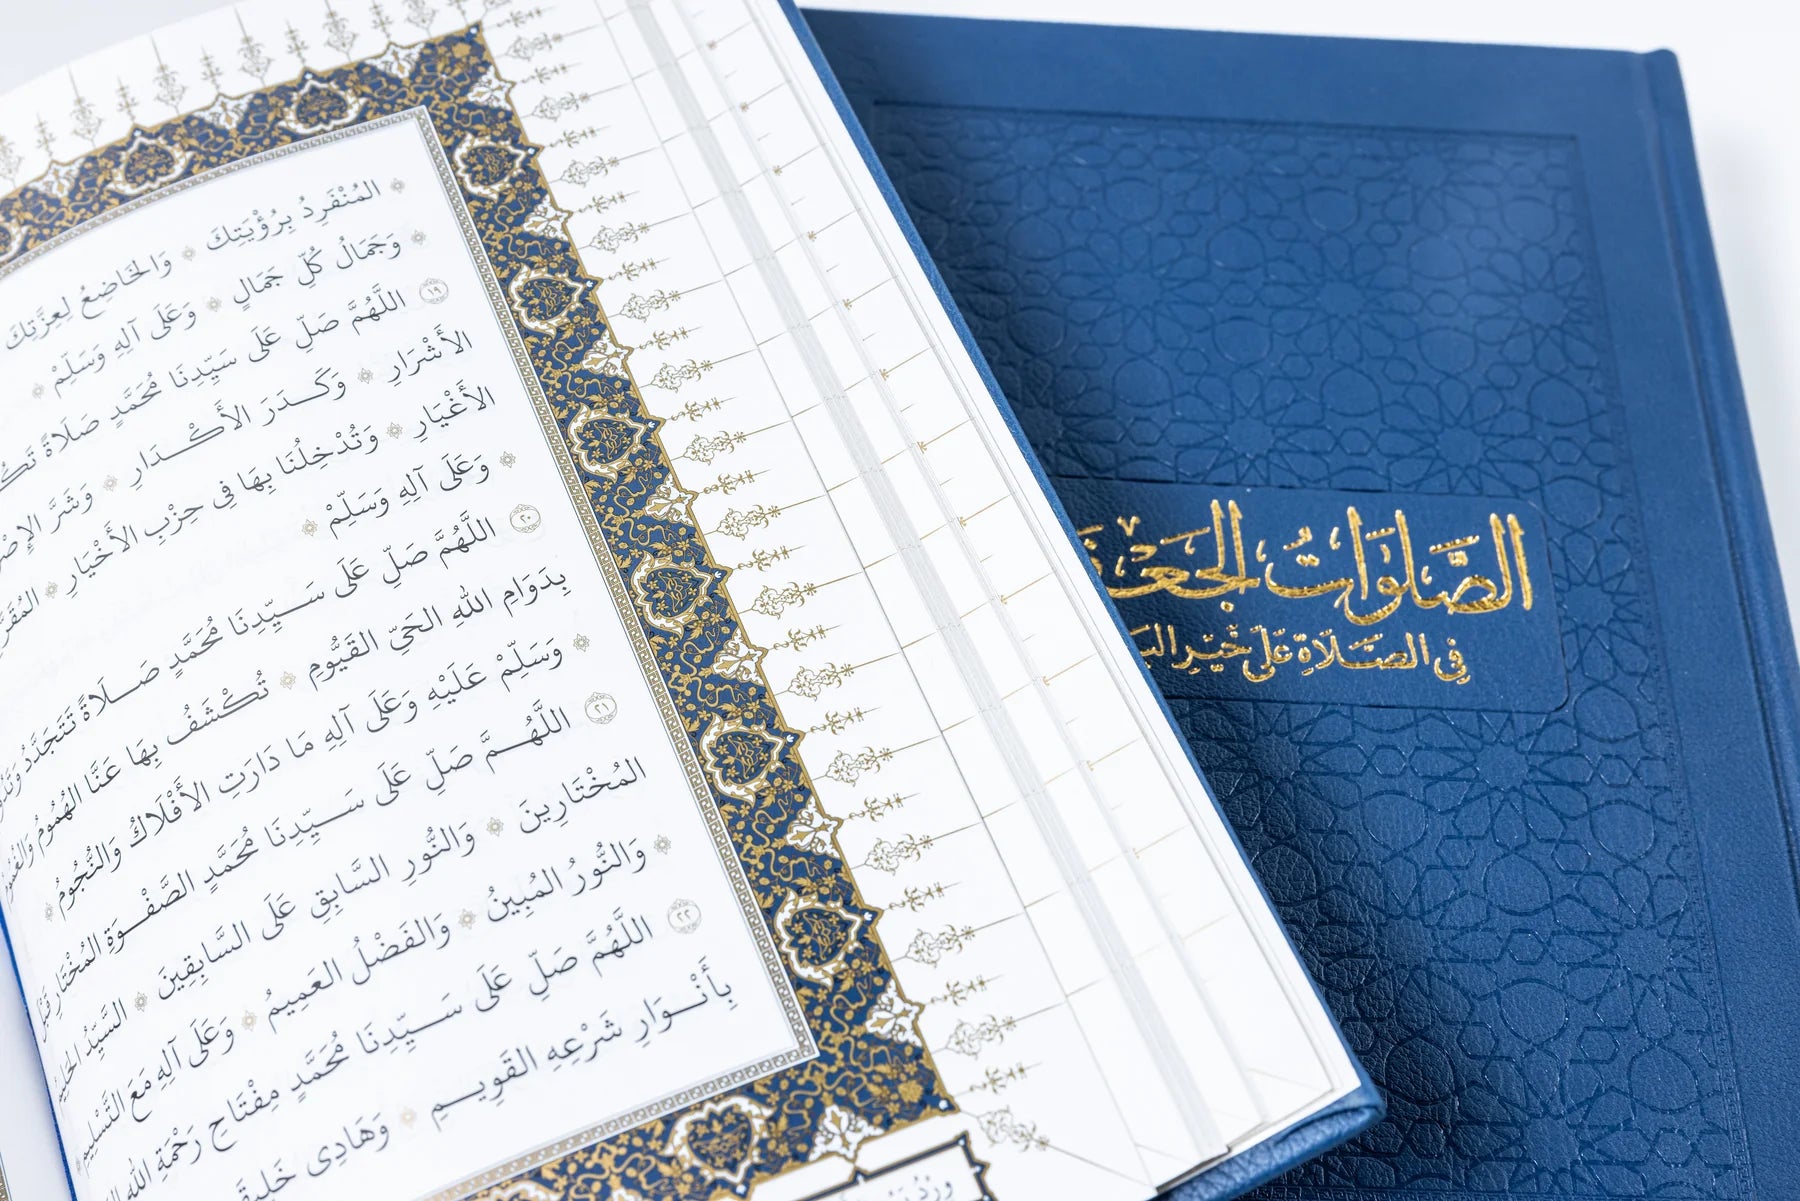 المُنْفَرِدُ بِرُؤْيَتِكَ ۞ وَالخَاضِعُ لِعِزَّتِكَ
وَجَمَالُ كُلِّ جَمَالٍ ۞ وَعَلَى آلِهِ وَسَلِّمْ ۞
١٩ اللَّهُمَّ صَلِّ عَلَى سَيِّدِنَا مُحَمَّدٍ صَلَاةً
الأَشْرَارِ ۞ وَكَدَرَ الأَكْدَارِ ۞ وَشَرَّ
الأَغْيَارِ ۞ وَتُدْخِلُنَا بِهَا فِي حِزْبِ الأَخْيَارِ ۞
۞ وَعَلَى آلِهِ وَسَلِّمْ ۞
٢٠ اللَّهُمَّ صَلِّ عَلَى سَيِّدِنَا مُحَمَّدٍ صَلَاةً تَتَجَدَّدُ
بِدَوَامِ اللهِ الحَيِّ القَيُّومِ ۞ تُكْشَفُ بِهَا عَنَّا الهُمُومُ وَالغُمُومُ
۞ وَسَلِّمْ عَلَيْهِ وَعَلَى آلِهِ مَا دَارَتِ الأَفْلَاكُ وَالنُّجُومُ ۞
٢١ اللَّهُمَّ صَلِّ عَلَى سَيِّدِنَا مُحَمَّدٍ الصَّفْوَةِ المُخْتَارِ قَبْلَ
المُخْتَارِينَ ۞ وَالنُّورِ السَّابِقِ عَلَى السَّابِقِينَ ۞ السَّيِّدُ
۞ وَالنُّورُ المُبِينُ ۞ وَالفَضْلُ العَمِيمُ ۞ وَعَلَى آلِهِ مَعَ التَّسْلِيمِ ۞
٢٢ اللَّهُمَّ صَلِّ عَلَى سَيِّدِنَا مُحَمَّدٍ مِفْتَاحِ رَحْمَةِ اللهِ
بِأَنْوَارِ شَرْعِهِ القَوِيمِ ۞ وَهَادِي
الصَّلَوَاتُ
فِي الصَّلَاةِ عَلَى خَيْرِ